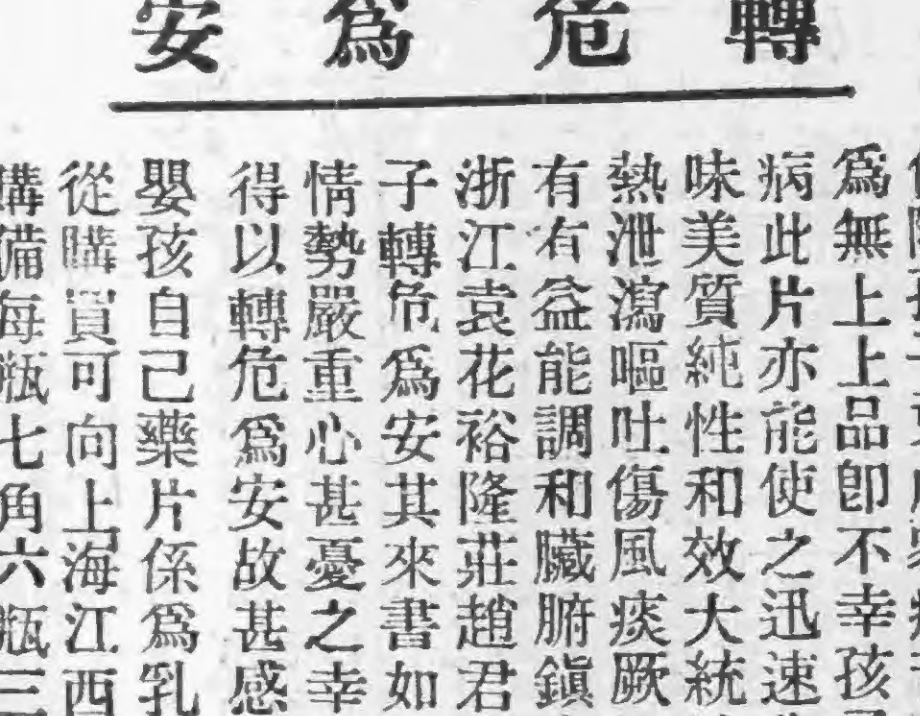 轉危爲安
爲無上上品卽不幸孩
病此片亦能使之迅速
味美質純性和效大統
熱泄瀉嘔吐傷風痰厥
有有益能調和臟腑鎭
浙江袁花裕隆莊趙君
子轉危爲安其來書如
情勢嚴重心甚憂之幸
得以轉危爲安故甚感
嬰孩自己藥片係爲乳
從購買可向上海江西
購備每瓶七角六瓶三